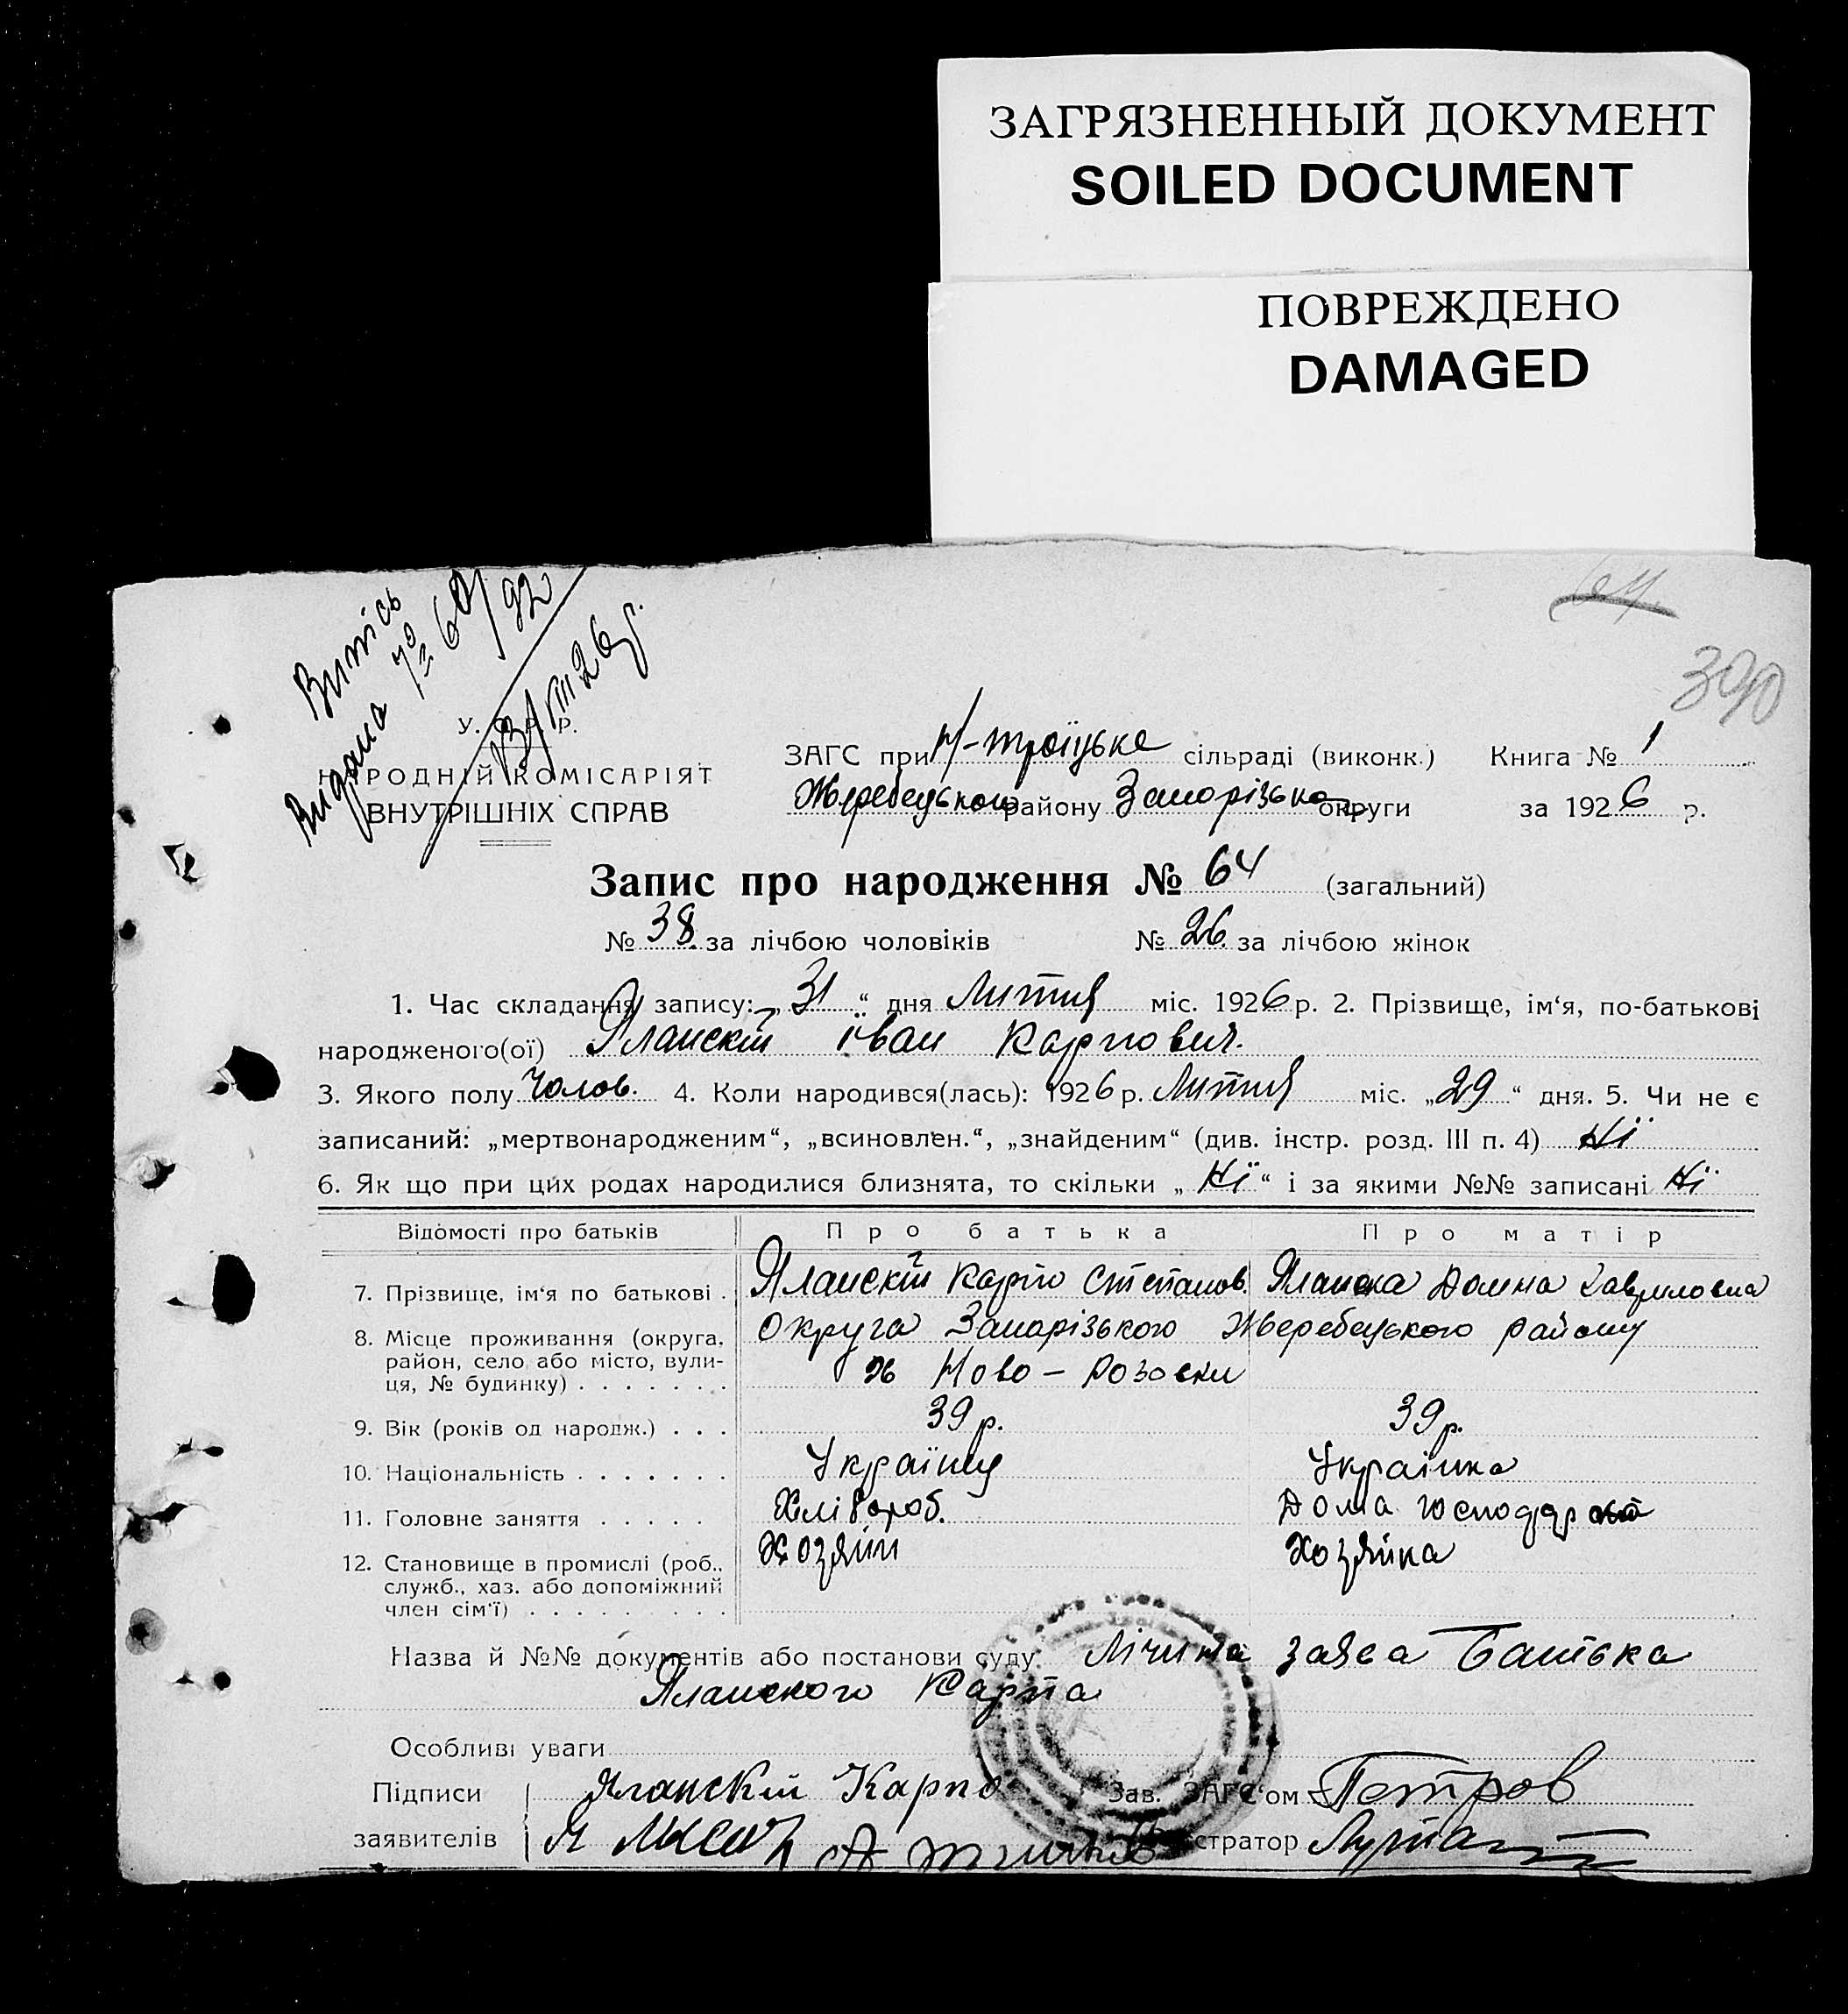 ЗАГРЯЗНЕННЫЙ ДОКУМЕНТ
SOILED DOCUMENT
ПОВРЕЖДЕНО
DAMAGED
64
390
Випісь
Видана № 64/92
13/VIII 26р.
У. С. Р. Р.
НАРОДНІЙ КОМІСАРІЯТ
ВНУТРІШНІХ СПРАВ
ЗАГС при Н-троїцька сільраді (виконк.) Книга № 1
Жеребецького району Запорізька округи за 1926 р.
Запис про народження № 64 (загальний)
№ 38. за лічбою чоловіків № 26. за лічбою жінок
1. Час складання запису: „ 31 “ дня Липня міс. 1926 р. 2. Прізвище, ім‘я, по-батькові
народженого(ої) Яланскій іван Карпович.
3. Якого полу Чолов. 4. Коли народився(лась): 1926 р. Липня міс. „29“ дня. 5. Чи не є
записаний: „мертвонародженим“, „всиновлен.“, „знайденим“ (див. інстр. розд. III п. 4) Ні
6. Як що при цих родах народилися близнята, то скільки „ Ні “ і за якими №№ записані Ні
Відомості про батьків Про батька Про матір
7. Прізвище, ім‘я по батькові . Яланскій Карпо Степанов. Яланска Домна Гавриловна
8. Місце проживання (округа, Округа Запорізького Жеребецького району
район, село або місто, вули- х Ново - Розовки
ця, № будинку) . . . . . . .
9. Вік (років од народж.) . . . 39 р. 39 р.
10. Національність . . . . . . . Українц Українка
11. Головне заняття . . . . . Хлібороб. Дома господар
12. Становище в промислі (роб., Хозяїн Хозяйка
служб., хаз. або допоміжний
член сім‘ї) . . . . . . . . .
Назва й №№ документів або постанови суду: Лічина заява Батька
Яланского Карпа
Особливі уваги
Підписи Яланскій Карпо Зав. ЗАГС‘ом Петров
заявителів Реєстратор